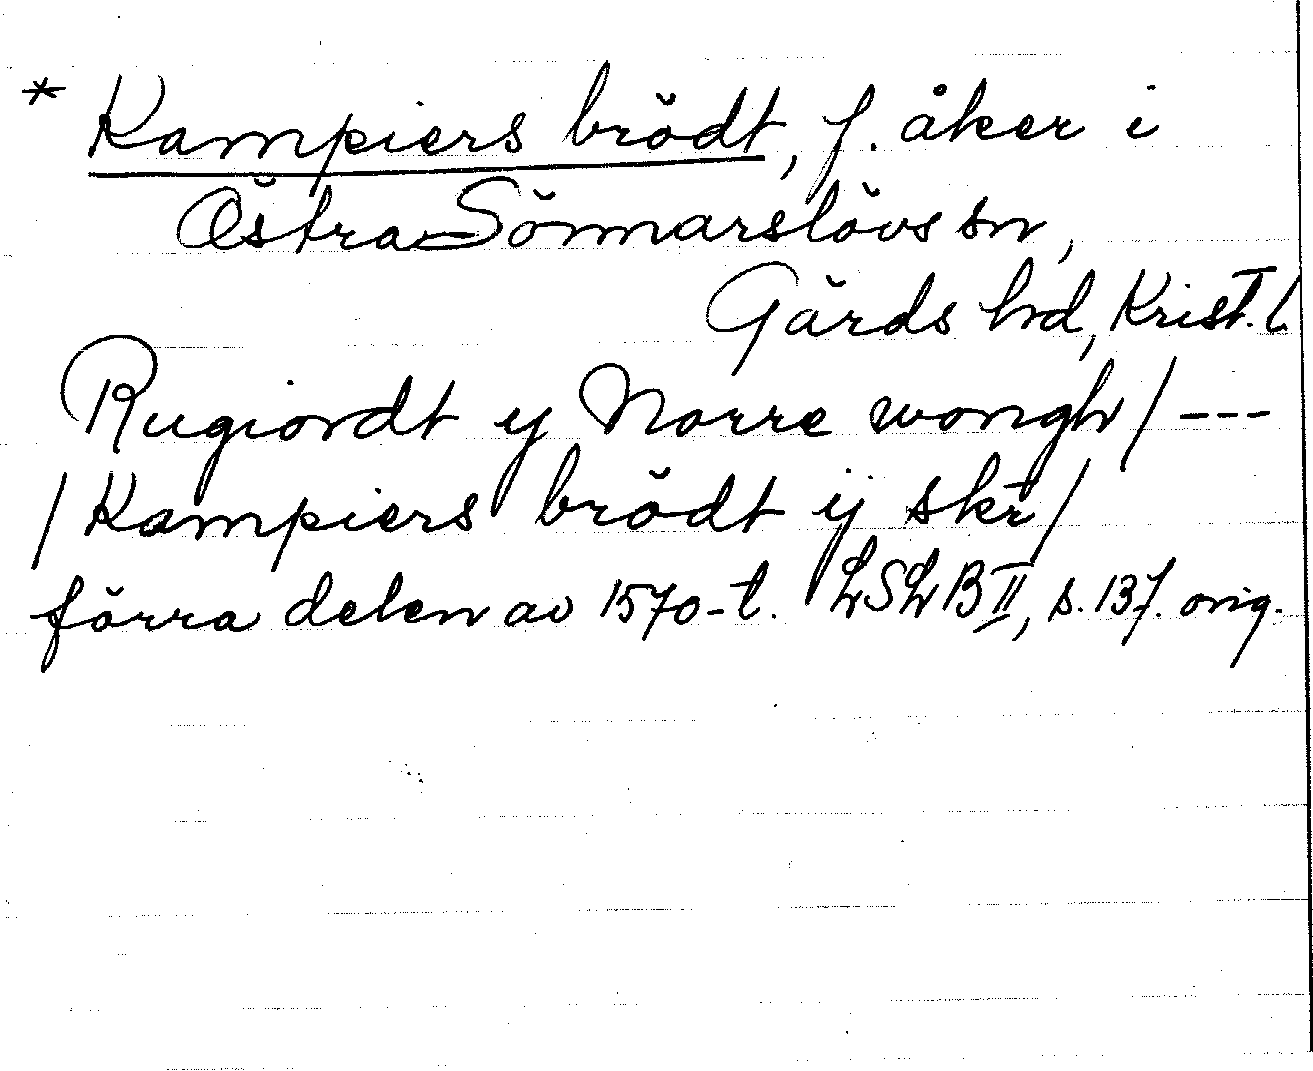 * Kampiers brödt, f. åker i
Östra Sönnarslövs sn,
Gärds hd, Krist. l.
Rugiordt y Norre wongh / ---
/ Kampiers brödt ij skr /
förra delen av 1570-t. LSLB II, s. 137. orig.